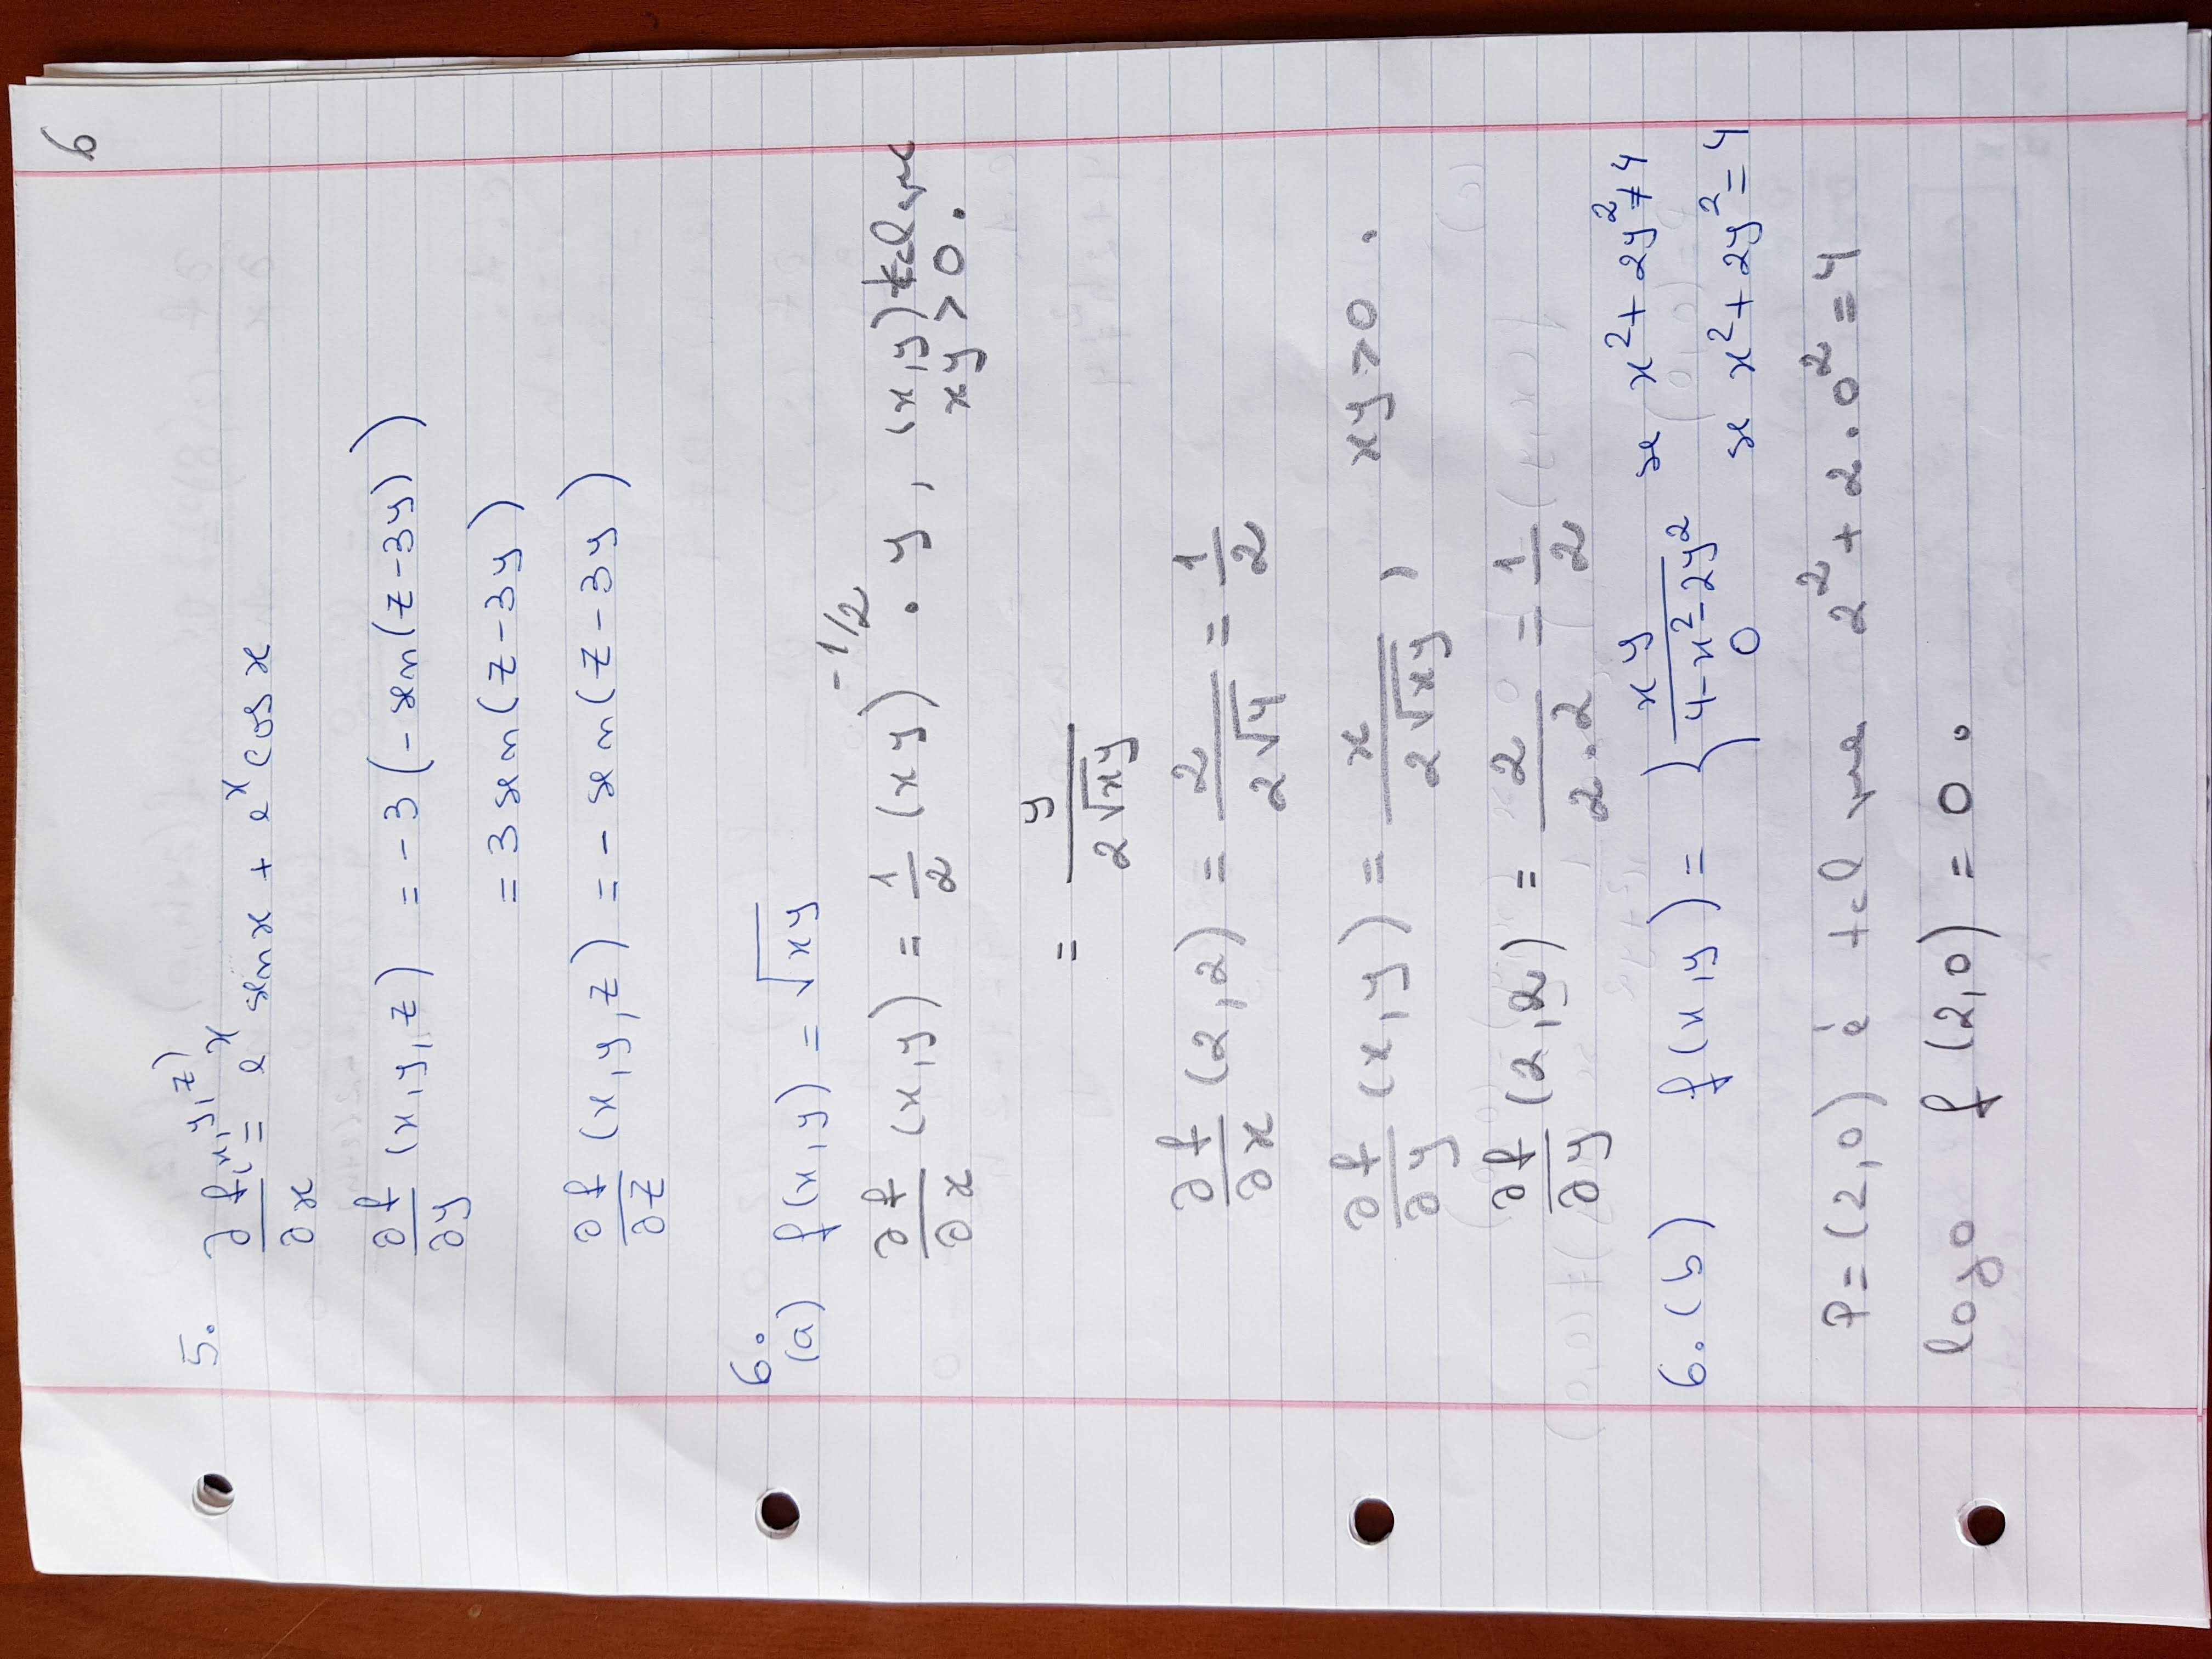 6
5. ∂f/∂x (x, y, z) = eˣ sen x + eˣ cos x
∂f/∂y (x, y, z) = -3 (- sen(z-3y))
= 3 sen(z-3y)
∂f/∂z (x, y, z) = - sen(z-3y)
6.
(a) f(x, y) = √xy
∂f/∂x (x, y) = 1/2 (xy)^(-1/2) · y, (x, y) tal que
xy > 0.
= y/(2√xy)
∂f/∂x (2, 2) = 2/(2√4) = 1/2
∂f/∂y (x, y) = x/(2√xy), xy > 0.
∂f/∂y (2, 2) = 2/(2·2) = 1/2
6. (b) f(x, y) = { xy/(4-x²-2y²) se x²+2y² ≠ 4
0 se x²+2y² = 4
P = (2, 0) é tal que 2² + 2·0² = 4
logo f(2, 0) = 0.